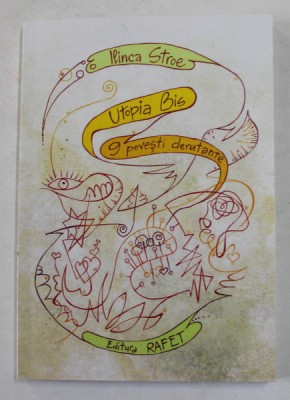 Ilinca Stroe
Utopia Bis
9 povești derutante
Editura RAFET